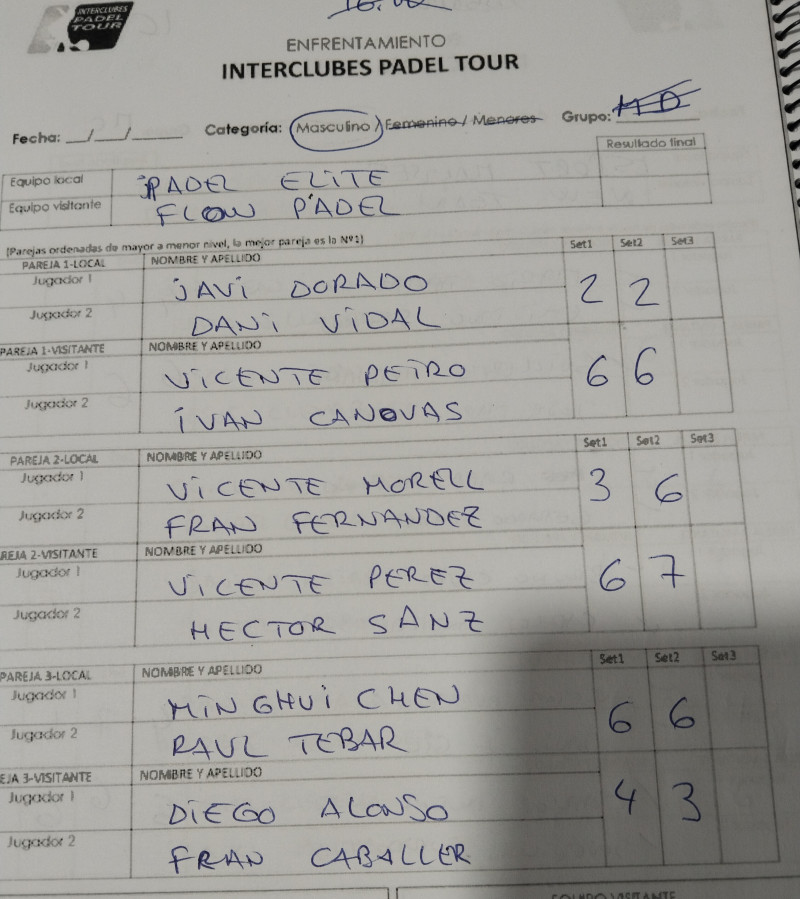 INTERCLUBES
PADEL
TOUR
16:00
ENFRENTAMIENTO
INTERCLUBES PADEL TOUR
Fecha: __/___/____ Categoría: Masculino / Femenino / Menores Grupo: MD
Resultado final
Equipo local PADEL ELITE
Equipo visitante FLOW PADEL
(Parejas ordenadas de mayor a menor nivel, la mejor pareja es la Nº1) Set1 Set2 Set3
PAREJA 1-LOCAL NOMBRE Y APELLIDO
Jugador 1 JAVI DORADO 2 2
Jugador 2 DANI VIDAL
PAREJA 1-VISITANTE NOMBRE Y APELLIDO
Jugador 1 VICENTE PEIRO 6 6
Jugador 2 IVAN CANOVAS
Set1 Set2 Set3
PAREJA 2-LOCAL NOMBRE Y APELLIDO
Jugador 1 VICENTE MORELL 3 6
Jugador 2 FRAN FERNANDEZ
REJA 2-VISITANTE NOMBRE Y APELLIDO
Jugador 1 VICENTE PEREZ 6 7
Jugador 2 HECTOR SANZ
Set1 Set2 Set3
PAREJA 3-LOCAL NOMBRE Y APELLIDO
Jugador 1 MINGHUI CHEN 6 6
Jugador 2 RAUL TEBAR
EJA 3-VISITANTE NOMBRE Y APELLIDO
Jugador 1 DIEGO ALONSO 4 3
Jugador 2 FRAN CABALLER
EQUIPO VISITANTE